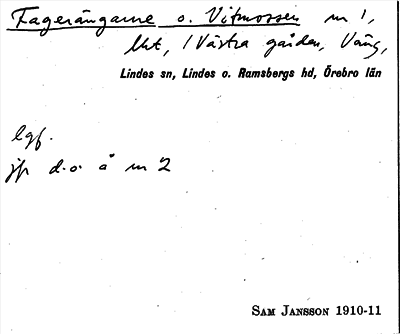 Fagerängarne o. Vitmossen m 1,
Utt, 1 Västra gården, Väng,
Lindes sn, Lindes o. Ramsbergs hd, Örebro län
lgf.
jfr d.o. å m 2
Sam Jansson 1910-11